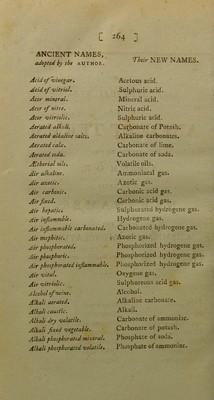 [ 264 ]
ANCIENT NAMES,
adopted by the AUTHOR. Their NEW NAMES.
Acid of vinegar. Acetous acid.
Acid of vitriol. Sulphuric acid.
Acor mineral. Mineral acid.
Acor of nitre. Nitric acid.
Acor vitriolic. Sulphuric acid.
Aerated alkali. Carbonate of Potash.
Aerated alkaline salts. Alkaline carbonates.
Aerated calx. Carbonate of lime.
Aerated soda. Carbonate of soda.
Ætherial oils. Volatile oils.
Air alkaline. Ammoniacal gas.
Air azotic. Azotic gas.
Air carbonic. Carbonic acid gas.
Air fixed. Carbonic acid gas.
Air hepatic. Sulphurated hydrogene gas.
Air inflammable. Hydrogene gas.
Air inflammable carbonated. Carbonated hydrogene gas.
Air mephitic. Azotic gas.
Air phosphorated. Phosphorized hydrogene gas.
Air phosphoric. Phosphorized hydrogene gas.
Air phosphorated inflammable. Phosphorized hydrogene gas.
Air vital. Oxygene gas.
Air vitriolic. Sulphureous acid gas.
Alcohol of wine. Alcohol.
Alkali aerated. Alkaline carbonate.
Alkali caustic. Alkali.
Alkali dry volatile. Carbonate of ammoniac.
Alkali fixed vegetable. Carbonate of potash.
Alkali phosphorated mineral. Phosphate of soda.
Alkali phosphorated volatile. Phosphate of ammoniac.